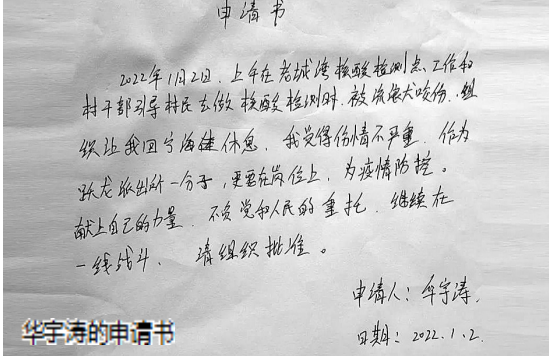 申请书
2022年1月2日，上午在老城湾核酸检测点工作和
村干部引导村民去做核酸检测时，被流浪犬咬伤，组
织让我回宁海健休息，我觉得伤情不严重，作为
跃龙派出所一分子，更要在岗位上，为疫情防控。
献上自己的力量，不负党和人民的重托，继续在
一线战斗、请组织批准。
申请人：华宇涛.
日期：2022.1.2.
华宇涛的申请书